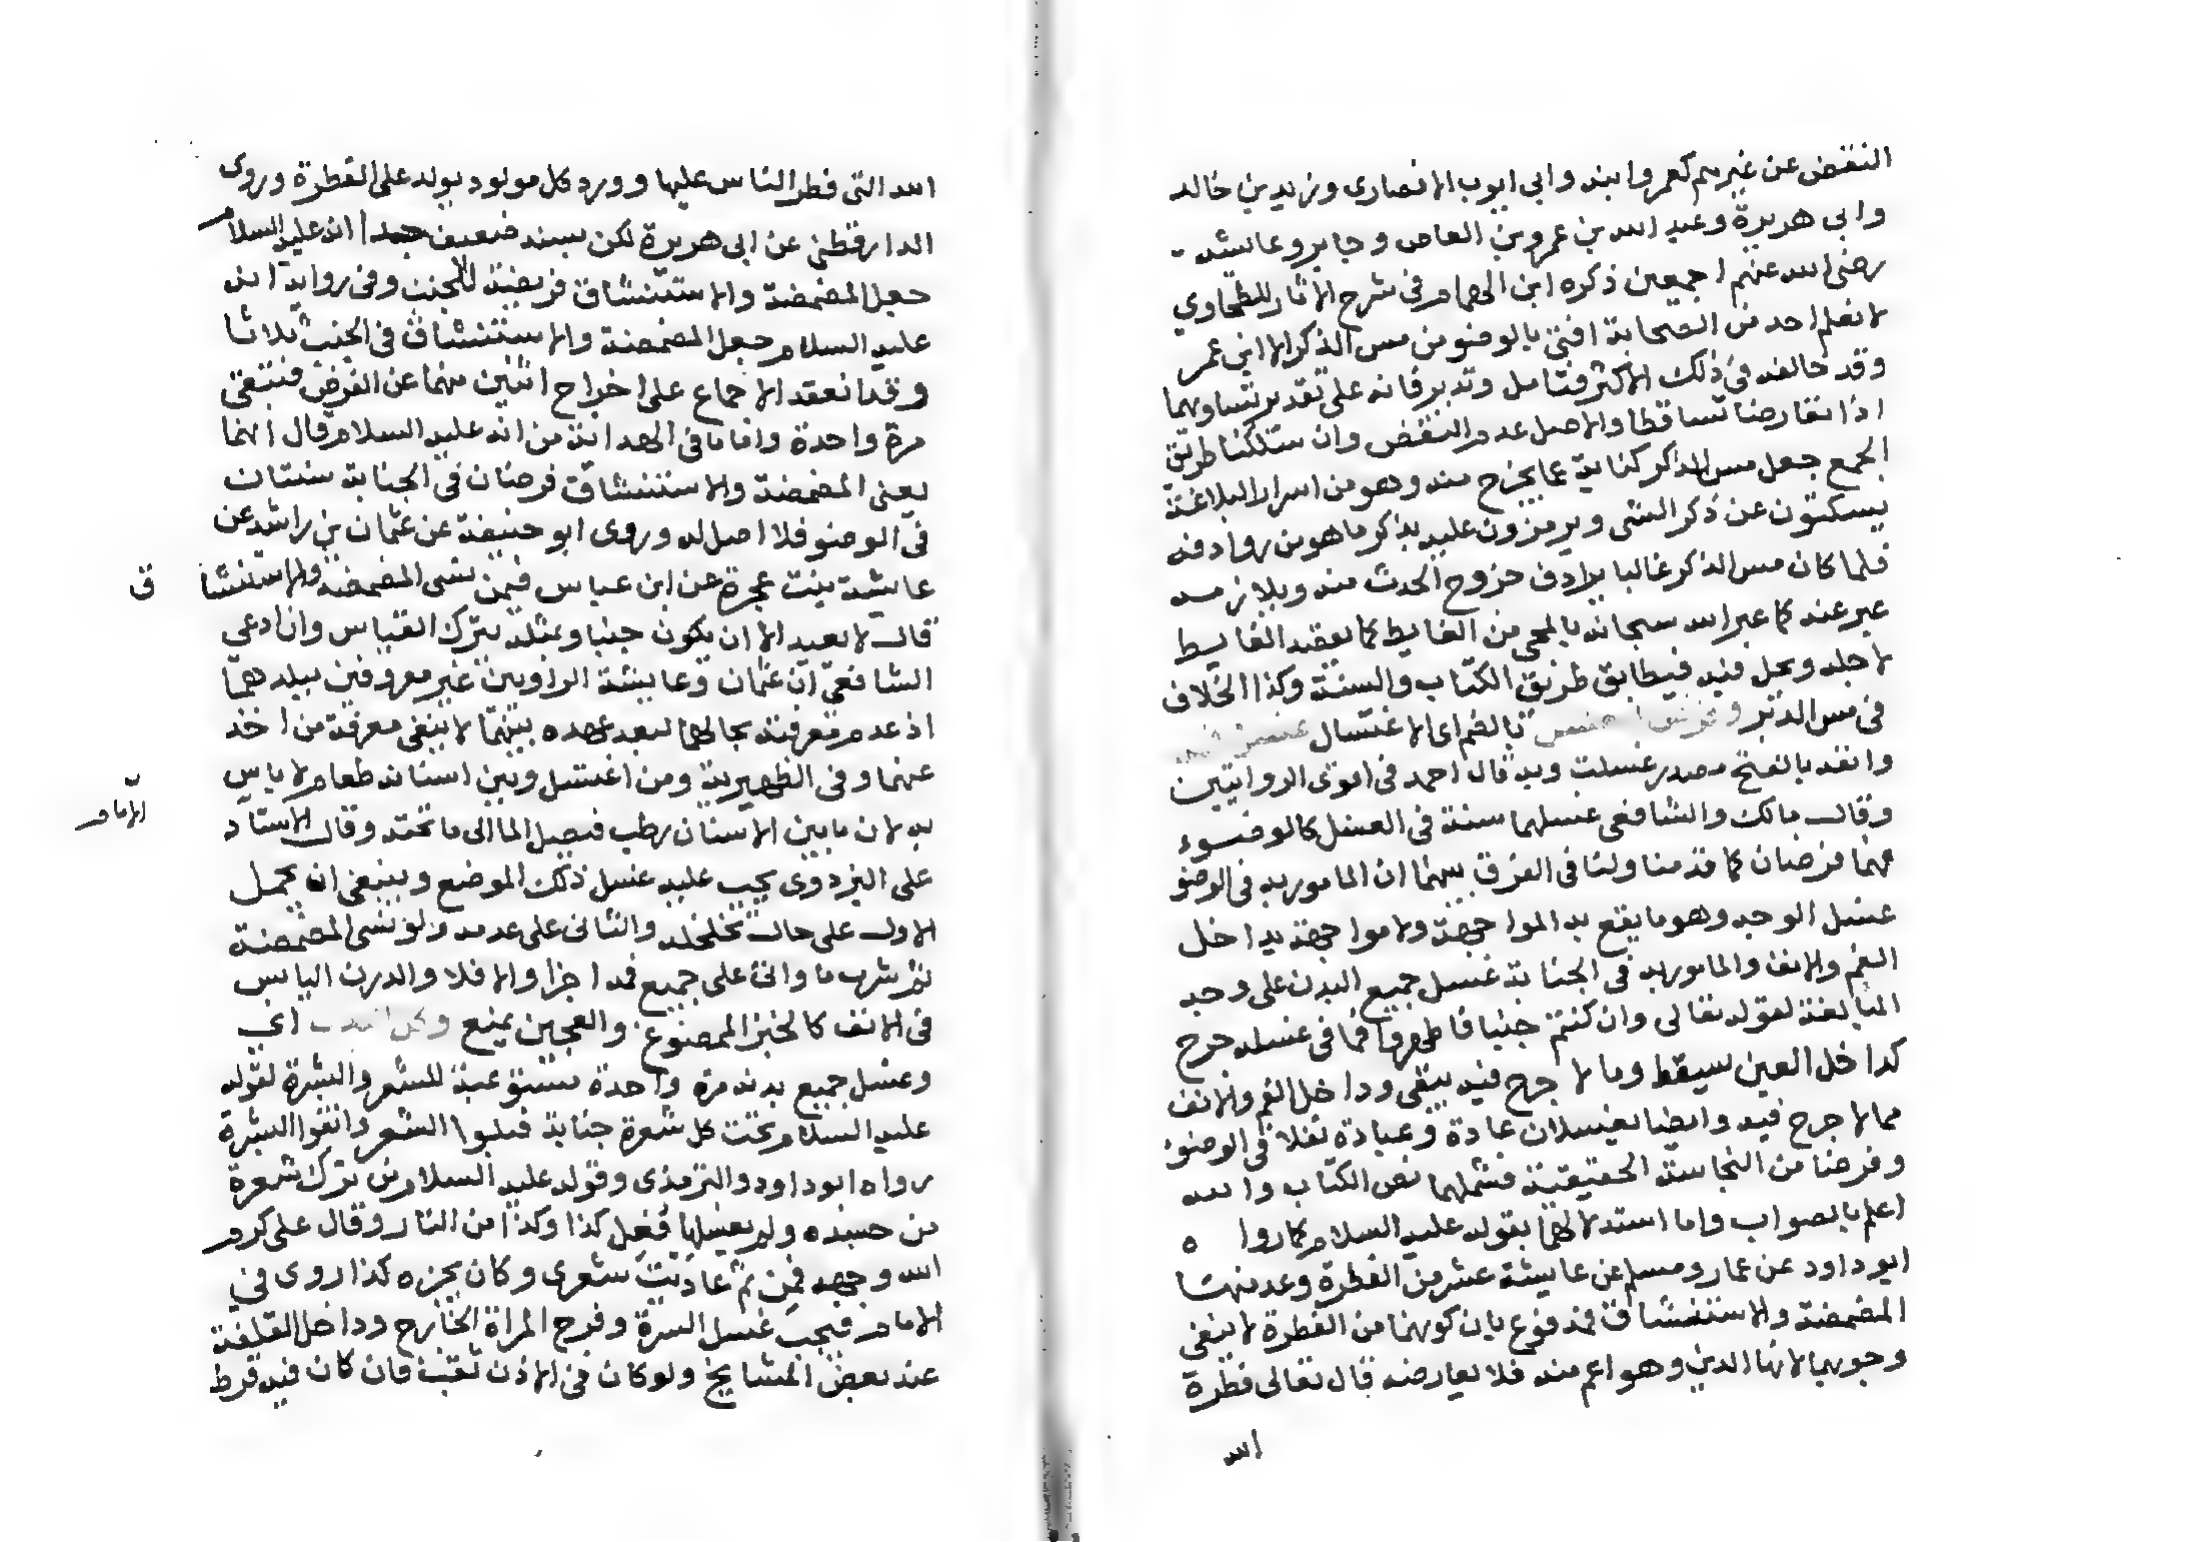 النقض عن غيرهم كعمر وابنه وابى ايوب الانصارى وزيد بن خالد
وابى هريرة وعبد الله بن عمرو بن العاص وجابر وعائشة
رضى الله عنهم اجمعين ذكره ابن الهمام وفى شرح الاثار للطحاوي
لا نعلم احد من الصحابة افتى بالوضوء من مس الذكر الا ابن عمر
وقد خالفه فى ذلك الاكثر فتامل وتدبر فانه على تقدير تساويهما
اذا تعارضا تساقطا والاصل عدم النقض وان سلكنا طريق
الجمع جعل مس الذكر كناية عما يخرج منه وهو من اسرار البلاغة
يسكتون عن ذكر الشى ويرمزون عليه بذكر ما هو من روادفه
فلما كان مس الذكر غالبا يرادف خروج الحدث منه ويلازمه
عبر عنه كما عبر الله سبحانه بالمجى من الغايط كما يعقبه الغايط
لاجله ويحل فيه فيطابق طريق الكتاب والسنة وكذا الخلاف
فى مس الدبر وفرض بالضم اى الاغتسال غسل فمه
وانفه بالفتح مصدر غسلت وبه قال احمد فى اقوى الروايتين
وقال مالك والشافعى غسلهما سنة فى الغسل كالوضوء
مهما فرضان كما قدمنا ولنا فى الفرق بينهما ان المامور به فى الوضو
غسل الوجه وهو ما يقع به المواجهة ولا مواجهة بداخل
الفم والانف والمامور به فى الجنابة غسل جميع البدن على وجه
المبالغة لقوله تعالى وان كنتم جنبا فاطهروا فما فى غسله حرج
كداخل العين سيقط وما لا حرج فيه يبقى وداخل الفم والانف
مما لا حرج فيه وايضا يغسلان عادة وعبادة نفلا فى الوضوء
وفرضا من النجاسة الحقيقية فشملهما نص الكتاب والله
اعلم بالصواب واما استدلالهما بقوله عليه السلام كما رواه
ابو داود عن عمار ومسلم عن عايشة عشر من الفطرة وعد منها
المضمضة والاستنشاق فمدفوع بان كونهما من الفطرة لا ينفى
وجوبهما لانها الدين وهو اعم منه فلا يعارضه قال تعالى فطرة
الله
الله التى فطر الناس عليها وورد كل مولود يولد على الفطرة وروى
الدارقطنى عن ابى هريرة لكن بسند ضعيف جدا انه عليه السلام
جعل المضمضة والاستنشاق فريضة للجنب وفى رواية انه
عليه السلام جعل المضمضة والاستنشاق فى الجنب ثلاثا
وقد انعقد الاجماع على اخراج اثنين منهما عن الفرض فتبقى
مرة واحدة واما ما فى الهداية من انه عليه السلام قال انهما
يعنى المضمضة والاستنشاق فرضان فى الجنابة سنتان
فى الوضو فلا اصل له وروى ابو حنيفة عن عثمان بن راشد عن
عايشة بنت عجرة عن ابن عباس فيمن نسى المضمضة والاستنشاق
قال لا يعيد الا ان يكون جنبا وبمثله يترك القياس وان ادعى
الشافعى ان عثمان وعايشة الراويين غير معروفين ببلدهما
اذ عدم معرفته بحالهما لبعد عهده بينهما لا ينفى معرفة من اخذ
عنهما وفى الظهيرية ومن اغتسل وبين اسنانه طعام لا باس
به لان ما بين الاسنان رطب فيصل الما الى ما تحته وقال الاستاد
الامام
على البزدوى يجب عليه غسل ذلك الموضع وينبغى ان يحمل
الاول على حال تخلخله والثانى على عدمه ولو نسى المضمضة
ثم شرب ما واتى على جميع فمه اجزا والا فلا والدرن اليابس
فى الانف كالخبز الممضوغ والعجين يمنع وكل البدن اي
وغسل جميع بدنه مرة واحدة مستوعبة للشعر والبشرة لقوله
عليه السلام تحت كل شعرة جنابة فبلوا الشعر وانقوا البشرة
رواه ابو داود والترمذى وقوله عليه السلام من ترك شعرة
من جسده ولم يغسلها فعل كذا وكذا من النار وقال على كرم
الله وجهه فمن ثم عاديت شعرى وكان يجزه كذا روى فى
الامام فيجب غسل السرة وفرج المراة الخارج وداخل القلفة
عند بعض المشايخ ولو كان فى الاذن ثقب فان كان فيه قرط